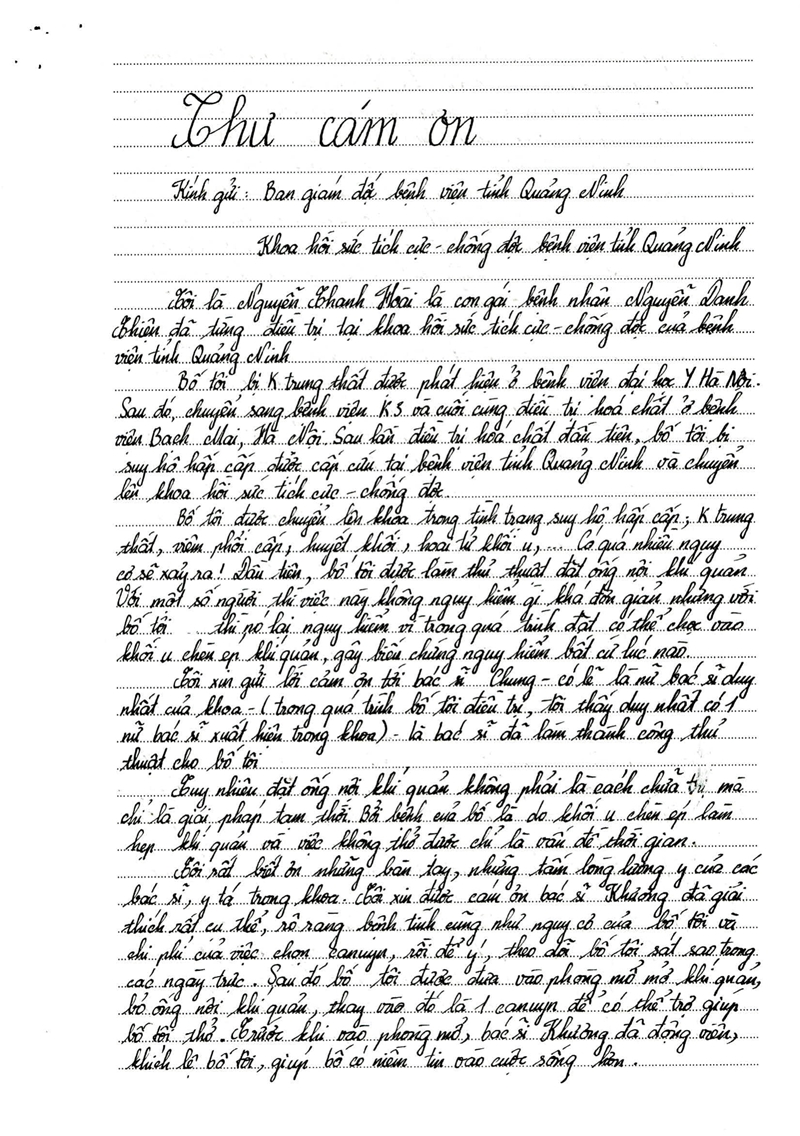 Thư cám ơn
Kính gửi: Ban giám đốc bệnh viện tỉnh Quảng Ninh
Khoa hồi sức tích cực - chống độc bệnh viện tỉnh Quảng Ninh
Tôi là Nguyễn Thanh Hoài là con gái bệnh nhân Nguyễn Danh
Thiện đã từng điều trị tại khoa hồi sức tích cực - chống độc của bệnh
viện tỉnh Quảng Ninh
Bố tôi bị K trung thất được phát hiện ở bệnh viện đại học Y Hà Nội.
Sau đó, chuyển sang bệnh viện K3 và cuối cùng điều trị hoá chất ở bệnh
viện Bạch Mai, Hà Nội. Sau lần điều trị hoá chất đầu tiên, bố tôi bị
suy hô hấp cấp được cấp cứu tại bệnh viện tỉnh Quảng Ninh và chuyển
lên khoa hồi sức tích cực - chống độc.
Bố tôi được chuyển lên khoa trong tình trạng suy hô hấp cấp; K trung
thất, viêm phổi cấp, huyết khối, hoại tử khối u,... Có quá nhiều nguy
cơ sẽ xảy ra! Đầu tiên, bố tôi được làm thủ thuật đặt ống nội khí quản
Với một số người thì việc này không nguy hiểm gì khá đơn giản nhưng với
bố tôi thì nó lại nguy hiểm vì trong quá trình đặt có thể chọc vào
khối u chèn ép khí quản, gây biến chứng nguy hiểm bất cứ lúc nào.
Tôi xin gửi lời cảm ơn tới bác sĩ Chung - có lẽ là nữ bác sĩ duy
nhất của khoa - (trong quá trình bố tôi điều trị, tôi thấy duy nhất có 1
nữ bác sĩ xuất hiện trong khoa) - là bác sĩ đã làm thành công thủ
thuật cho bố tôi
Tuy nhiên đặt ống nội khí quản không phải là cách chữa trị mà
chỉ là giải pháp tạm thời. Bởi bệnh của bố là do khối u chèn ép làm
hẹp khí quản và việc không thở được chỉ là vấn đề thời gian.
Tôi rất biết ơn những bàn tay, những tấm lòng lương y của các
bác sĩ, y tá trong khoa. Tôi xin được cám ơn bác sĩ Khương đã giải
thích rất cụ thể, rõ ràng bệnh tình cũng như nguy cơ của bố tôi và
chi phí của việc chọn canuyn, rồi để ý, theo dõi bố tôi sát sao trong
các ngày trực. Sau đó bố tôi được đưa vào phòng mổ mở khí quản,
bỏ ống nội khí quản, thay vào đó là 1 canuyn để có thể trợ giúp
bố tôi thở. Trước khi vào phòng mổ, bác sĩ Khương đã động viên,
khích lệ bố tôi, giúp bố có niềm tin vào cuộc sống hơn.